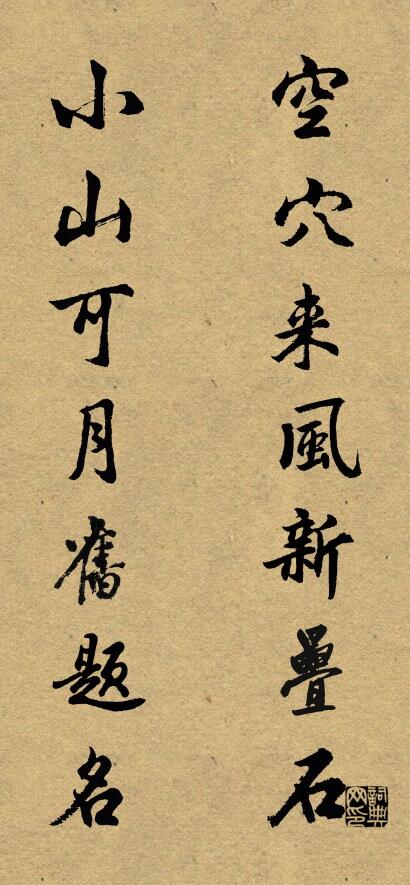 空穴来風新疊石
小山可月舊題名
詞典网印